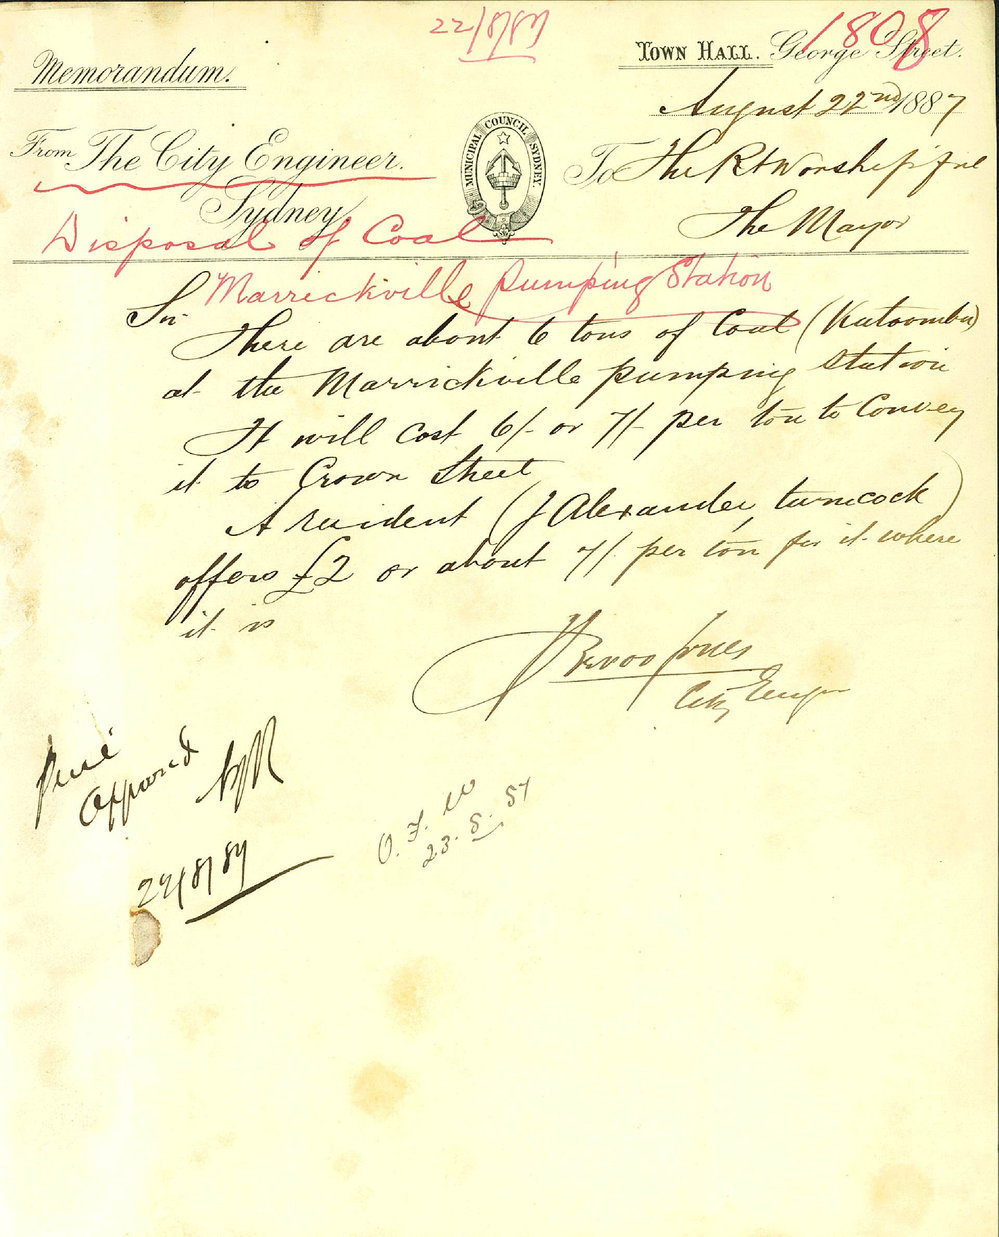 22/8/87
1808
Memorandum.
TOWN HALL. George Street.
August 22nd 1887
From The City Engineer.
Sydney
MUNICIPAL COUNCIL SYDNEY.
To The Rt Worshipful
The Mayor
Disposal of Coal
Marrickville Pumping Station
Sir
There are about 6 tons of Coal (Katoomba)
at the Marrickville pumping station
It will cost 6/- or 7/- per ton to Convey
it to Crown Street
A resident (J Alexander turncock)
offers £2 or about 7/- per ton for it where
it is
City Engr
Approved
22/8/87
O. F. W
23.8.87